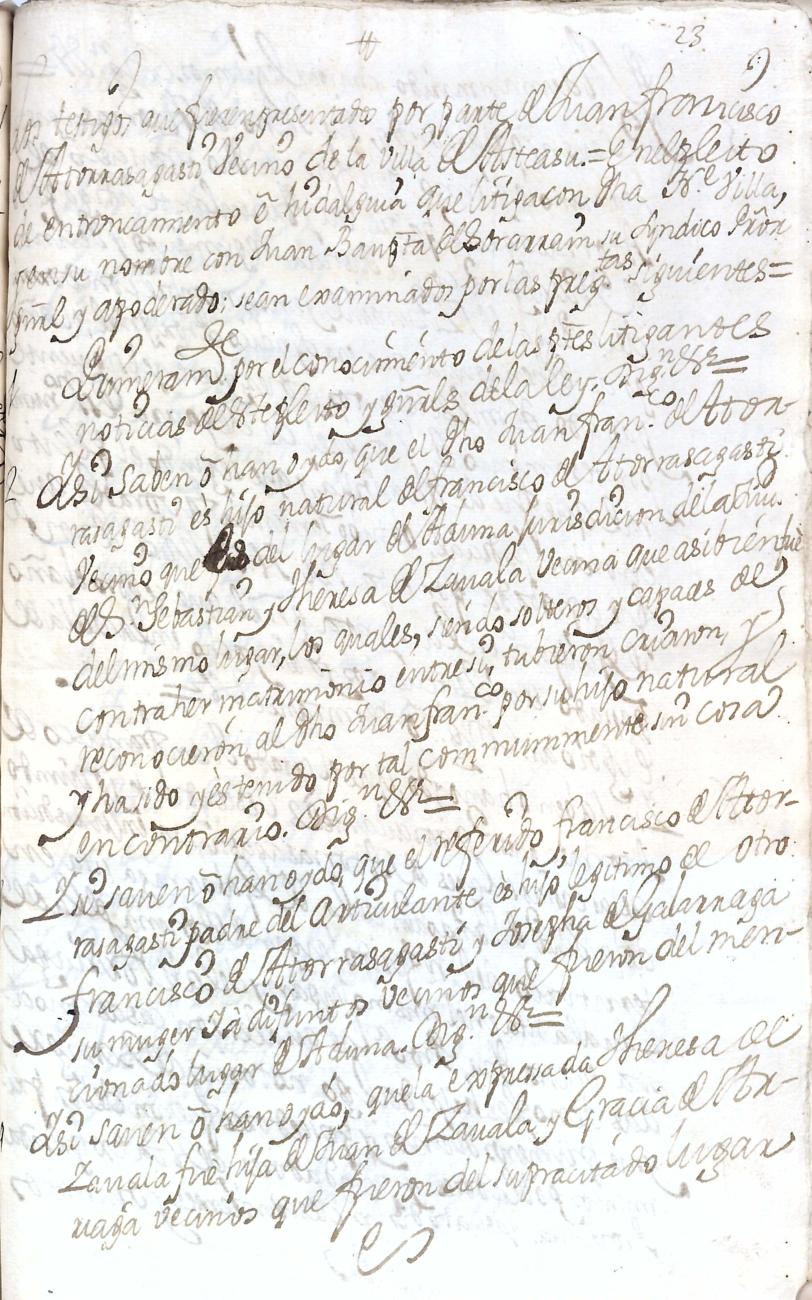 23
los testigos que fueren presentados por parte de Juan francisco
de Atorrasagasti Vecino de la villa de Asteasu = En el pleito
de entroncamiento ô hidalguia que litiga con dha N.e Villa,
y en su nombre con Juan Bauptta de Sorarrain su Syndico Pror
gñral y apoderado; sean examinados por las preg.tas siguientes =
Primeram.te por el conocimiento de las ptes litigantes
noticias de este pleito y gñrals de la ley. Dig.n &a =
2 Ysi Saben ô han oydo, que el dho Juan fran.co de Ator-
rasagasti ès hijo natural de francisco de Atorrasagasti
Vecino que fue del lugar de Aduna Jurisdicion de la Ciu.d
de S.n Sebastian y Theresa de Zavala Vecina que asi bien fue
del mismo lugar, los quales, siendo solteros y capaces de
contraher matrimonio entre si, tubieron, criaron, y
reconocieron al dho Juan fran.co por su hijo natural
y ha sido y ès tenido por tal communmente sin cosa
en contrario. Dig.n &a =
Y si saven ô han oydo, que el referido francisco de Ator-
rasagasti padre del Articulante ès hijo legitimo de otro
francisco de Atorrasagasti y Josepha de Galarraga
su muger ya difuntos vecinos que fueron del men-
cionado lugar de Aduna. Dig.n &a =
Ysi saven ô han oydo, que la expressada Theresa de
Zavala fue hija de Juan de Zavala, y Gracia de Ar-
riaga vecinos que fueron del supracitado lugar